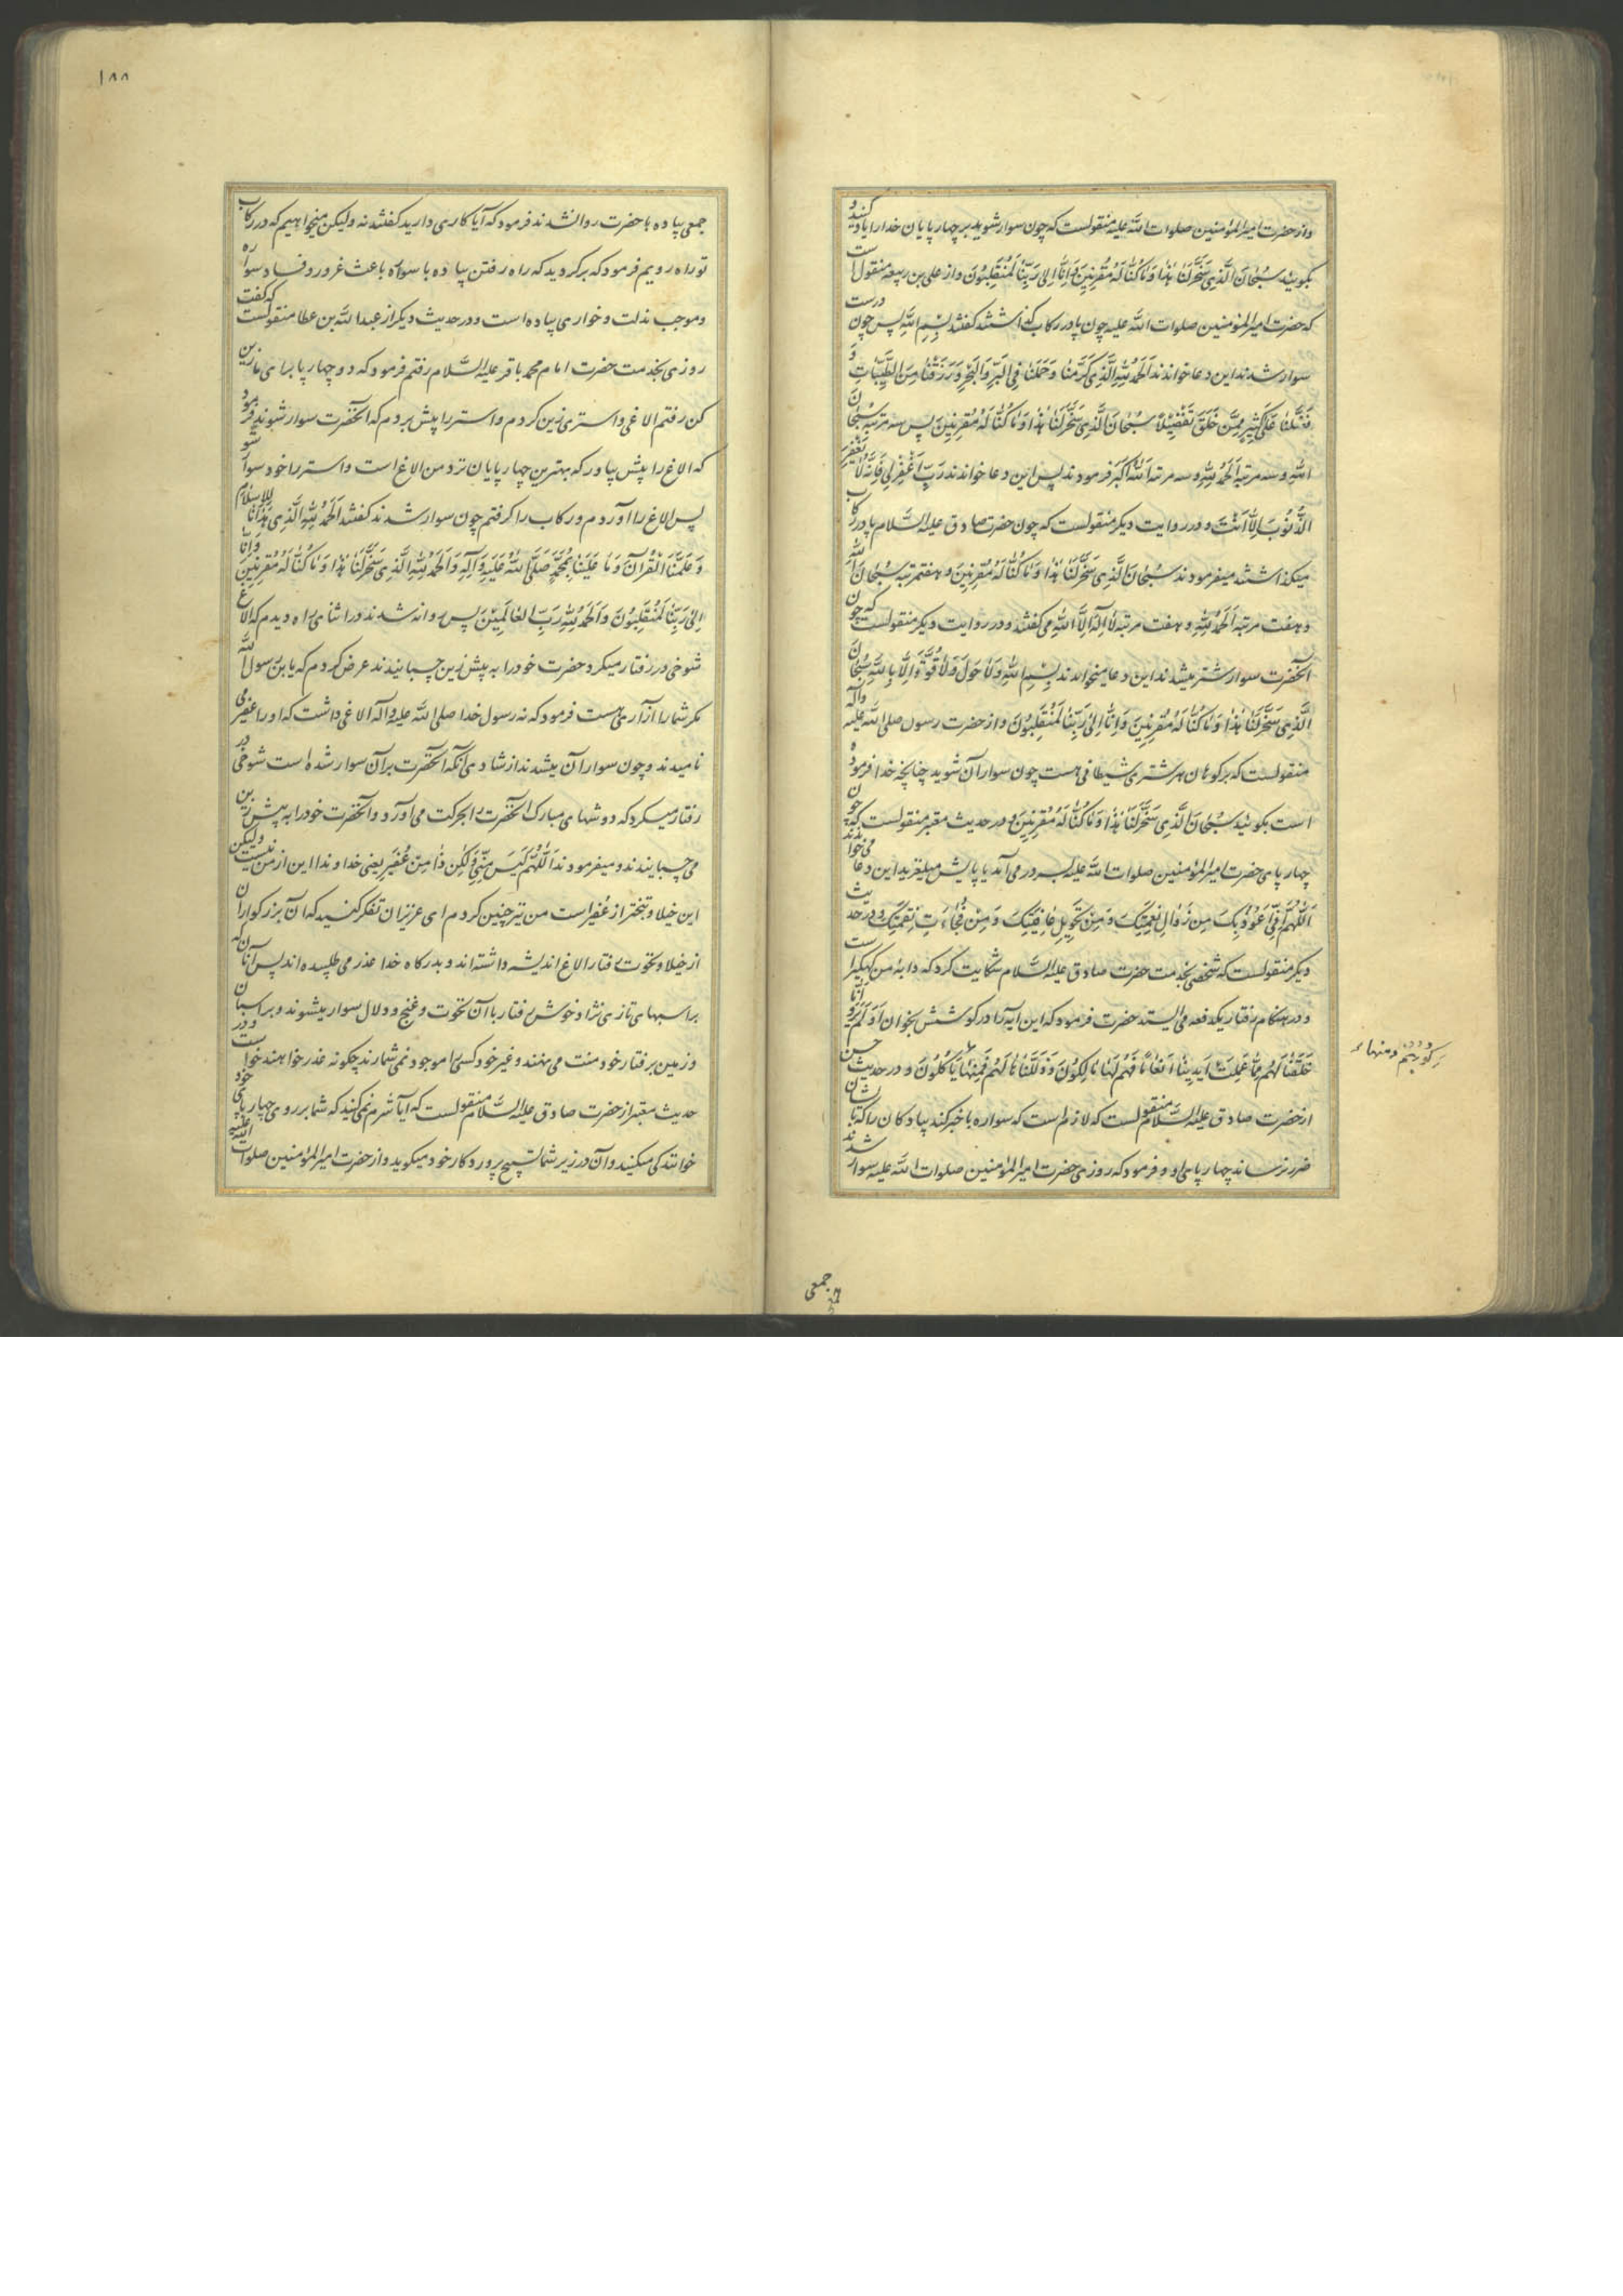 واز حضرت امیرالمؤمنین صلوات الله علیه منقولست که چون سوار شوید بر چهار پایان خدا را یاد کنید و
بگوییٔد سُبْحٰانَ الَّذِی سَخَّرَلَنٰا هٰذٰا وَمٰا کُنّٰا لَهُ مُقْرِنِینَ وَاِنّٰا اِلیٰ رَبِّنٰا لَمُنْقَلِبُونَ واز علی بن ربیعه منقول است
که حضرت امیرالمؤمنین صلوات الله علیه چون پا در رکاب گذاشتند گفتند بِسْمِ اللهِ پس چون درست
سوار شدند این دعا خواندند اَلْحَمْدُ لِلّٰهِ الَّذِی کَرَّمَنٰا وَحَمَلَنٰا فِی الْبَرِّ وَالْبَحْرِ وَرَزَقَنٰا مِنَ الطَّیِّبٰاتِ وَ
فَضَّلَنٰا عَلیٰ کَثِیرٍ مِمَّنْ خَلَقَ تَفْضِیْلاً سُبْحٰانَ الَّذِی سَخَّرَلَنٰا هٰذٰا وَمٰا کُنّٰا لَهُ مُقْرِنِینَ پس سه مرتبه سُبْحٰانَ
اللهِ وسه مرتبه اَلْحَمْدُ لِلّٰهِ وسه مرتبه اَللهُ اَکْبَر فرمودند پس این دعا خواندند رَبِّ اغْفِرْلِی فَاِنَّهُ لٰا یَغْفِرُ
الذُّنُوبَ اِلّٰا اَنْتَ و در روایت دیگر منقولست که چون حضرت صادق علیه السَّلام پا در رکاب
میگذاشتند میفرمودند سُبْحٰانَ الَّذِی سَخَّرَلَنٰا هٰذٰا وَمٰا کُنّٰا لَهُ مُقْرِنِینَ و هفتمرتبه سُبْحٰانَ اللهِ
و هفت مرتبه اَلْحَمْدُ لِلّٰهِ و هفت مرتبه لٰا اِلٰهَ اِلَّا اللهِ می گفتند و در روایت دیگر منقولست که چون
آنحضرت سوار شتر میشدند این دعا میخواندند بِسْمِ اللهِ وَلٰا حَوْلَ وَلٰا قُوَّةَ اِلّٰا بِاللهِ سُبْحٰانَ
الَّذِی سَخَّرَلَنٰا هٰذٰا وَمٰا کُنّٰا لَهُ مُقْرِنِینَ وَاِنّٰا اِلیٰ رَبِّنٰا لَمُنْقَلِبُونَ واز حضرت رسول صلی الله علیه وآله
منقولست که بر کوهان هر شتری شیطانی هست چون سوار آن شوید چنانچه خدا فرموده
است بگوییٔد سُبْحٰانَ الَّذِی سَخَّرَلَنٰا هٰذٰا وَمٰا کُنّٰا لَهُ مُقْرِنِینَ و در حدیث معتبر منقولست که چون
چهار پای حضرت امیرالمؤمنین صلوات الله علیه بسر در می آمد یا پایش میلغزید این دعا می خواندند
اَللّٰهُمَّ اِنِّی اَعُوْذُ بِکَ مِنْ زَوٰالِ نِعْمَتِکَ وَمِنْ تَحْوِیلِ عٰافِیَتِکَ وَمِنْ فُجٰاءَتِ نِقْمَتِکَ و در حدیث
دیگر منقولست که شخصی بخدمت حضرت صادق علیه السَّلام شکایت کرد که دابهٔ من کهگیر است
و در هنگام رفتار یکدفعه می ایستد حضرت فرمود که این آیه را در گوشش بخوان اَوَلَمْ یَرَوْا اَنّٰا
خَلَقْنٰا لَهُمْ مِمّٰا عَمِلَتْ اَیْدِینٰا اَنْعٰاماً فَهُمْ لَهٰا مٰالِکُوْنَ وَذَلَّلْنٰاهٰا لَهُمْ فَمِنْهٰا یَأْکُلُونَ و در حدیث حسن
رَکُوبُهُمْ ومنها
از حضرت صادق علیه السَّلام منقولست که لازم است که سواره باخبر کند پیادگان را که تا بایشان
ضرر نرساند چهار پای او و فرمود که روزی حضرت امیرالمؤمنین صلوات الله علیه سوار شدند
جمعی
۱۸۸
جمعی پیاده با حضرت روانشدند فرمود که آیا کاری دارید گفتند نه ولیکن میخواهیم که در رکاب
تو راه رویم فرمود که برگردید که راه رفتن پیاده با سواره باعث غرور و فساد سواره
وموجب مذلت وخواری پیاده است و در حدیث دیگر از عبدالله بن عطا منقولست که گفت
روزی بخدمت حضرت امام محمد باقر علیه السَّلام رفتم فرمود که دو چهارپا برای ما زین
کن رفتم الاغی و استری زین کردم و استر را پیش بردم که آنحضرت سوار شوند فرمود
که الاغ را پیش بیاور که بهترین چهارپایان نزد من الاغ است و استر را خود سوار شو
پس الاغ را آوردم و رکاب را گرفتم چون سوار شدند گفتند اَلْحَمْدُ لِلّٰهِ الَّذِی هَدٰانٰا لِلْاِسْلٰامِ
وَعَلَّمَنَا الْقُرْآنَ وَمَنَّ عَلَیْنٰا بِمُحَمَّدٍ صَلَّی اللهُ عَلَیْهِ وَآلِهِ وَاَلْحَمْدُ لِلّٰهِ الَّذِی سَخَّرَلَنٰا هٰذٰا وَمٰا کُنّٰا لَهُ مُقْرِنِینَ وَاِنّٰا
اِلیٰ رَبِّنٰا لَمُنْقَلِبُونَ وَاَلْحَمْدُ لِلّٰهِ رَبِّ الْعٰالَمِیْنَ پس روانه شدند در اثنای راه دیدم که الاغ
شوخی در رفتار میکرد حضرت خود را به پیش زین چسبانیدند عرض کردم که یابن رسول الله
مگر شما را آزاری هست فرمود که نه رسول خدا صلی الله علیه وآله الاغی داشت که او را عفیر می
نامیدند و چون سوار آن میشدند از شادی آنکه آنحضرت بر آن سوار شده است شوخی در
رفتار میکرد که دوشهای مبارک آنحضرت را بحرکت می آورد و آنحضرت خود را به پیش زین
می چسبانیدند و میفرمودند اَللّٰهُمَّ لَیْسَ مِنِّی وَلٰکِنْ ذٰا مِنْ عُفَیْرٍ یعنی خداوندا این از من نیست ولیکن
این خیلا و تبختر از عُفیر است من نیز چنین کردم ای عزیزان تفکر کنید که آن بزرگواران
از خیلا و نخوت رفتار الاغ اندیشه داشته اند و بدرگاه خدا عذر می طلبیده اند پس آنان که
بر اسبهای تازی نژاد خوش رفتار با آن نخوت و غنج و دلال سوار میشوند و بر اسبان
و زمین بر رفتار خود منت می نهند و غیر خود کسی را موجود نمی شمارند چگونه عذر خواهند خواست و در
حدیث معتبر از حضرت صادق علیه السَّلام منقولست که آیا شرم نمی کنید که شما بر روی چهارپای خود
خوانندگی میکنید و آن در زیر شما تسبیح پروردگار خود میگوید واز حضرت امیرالمؤمنین صلوات الله علیه